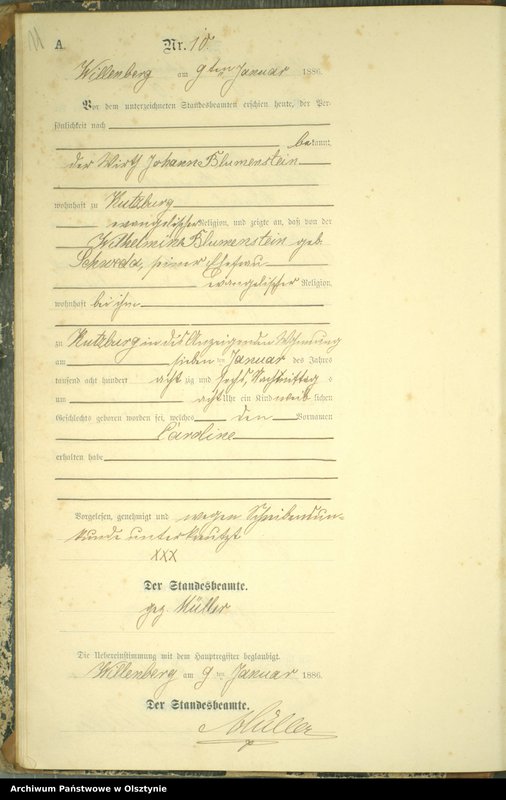 11
A. Nr. 10
Willenberg am 9ten Januar 1886.
Vor dem unterzeichneten Standesbeamten erschien heute, der Per-
sönlichkeit nach
bekannt,
der Wirth Johann Blumenstein
wohnhaft zu Kutzburg
evangelischer Religion, und zeigte an, daß von der
Wilhelmine Blumenstein geb.
Schweda, seiner Ehefrau
evangelischer Religion,
wohnhaft bei ihm
zu Kutzburg in des Anzeigenden Wohnung
am sieben ten Januar des Jahres
tausend acht hundert acht zig und sechs, Nachmittag s
um acht Uhr ein Kind weib lichen
Geschlechts geboren worden sei, welches den Vornamen
Caroline
erhalten habe
Vorgelesen, genehmigt und wegen Schreibensun-
kunde unterkreuzt
XXX
Der Standesbeamte.
gez. Müller
Die Uebereinstimmung mit dem Hauptregister beglaubigt.
Willenberg am 9 ten Januar 1886.
Der Standesbeamte.
Müller
Archiwum Państwowe w Olsztynie